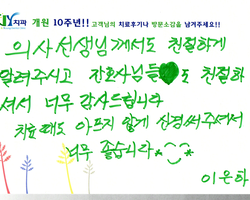 치과 개원 10주년!! 고객님의 치료후기나 방문소감을 남겨주세요!!
의사선생님께서도 친절하게
알려주시고 간호사님들♥도 친절하
셔서 너무 감사드립니다
치료 때도 아프지 않게 신경써주셔서
너무 좋습니다 *^_^*
이은하